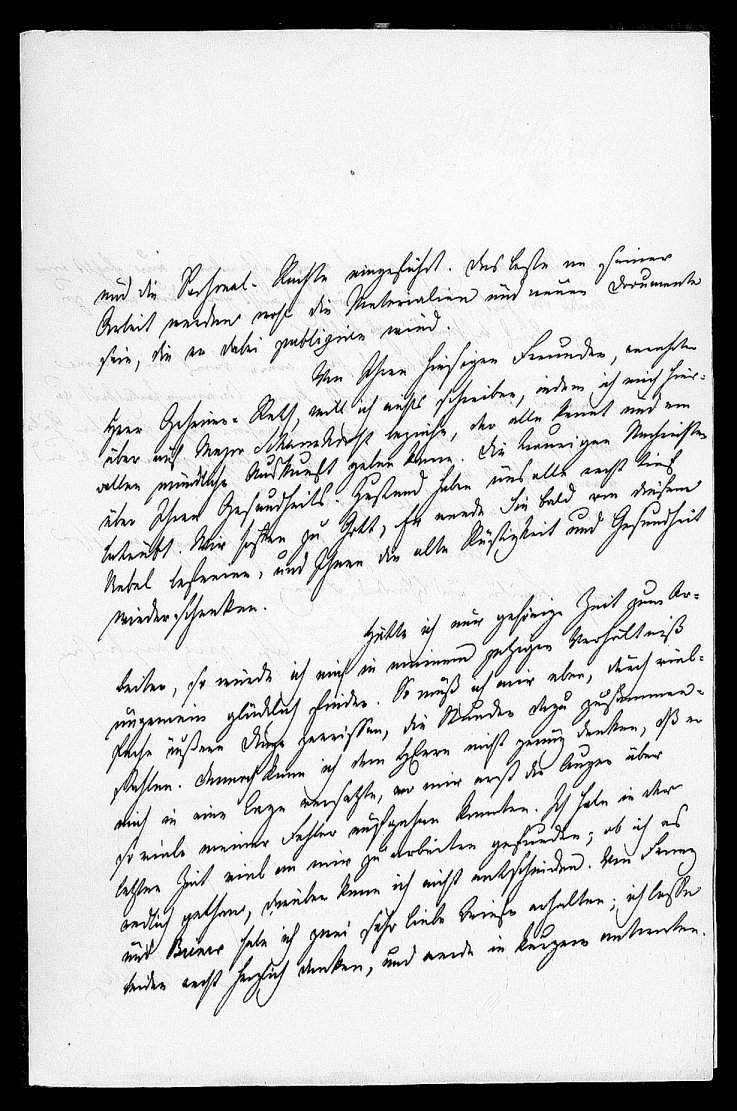 und die Personal-Rechte eingeführt. Das beste an seiner
Arbeit werden wohl die Materialien und neuen Documente
sein, die er dabei publiziren wird.
Von Ihren hiesigen Freunden, verehrter
Herr Geheime-Rath, will ich nichts schreiben, indem ich mich hier-
über auf Major beziehe, der alle kennt und von
allen mündliche Auskunft geben kann. Die traurigen Nachrichten
über Ihren Gesundheits-Zustand haben uns alle recht tief
betrübt. Wir hoffen zu Gott, Er werde Sie bald von diesem
Uebel befreien, und Ihnen die alte Rüstigkeit und Gesundheit
wieder schenken.
Hätte ich nur gehörige Zeit zum Ar-
beiten, so würde ich mich in meinem jetzigen Verhältniß
ungemein glücklich finden. So muß ich mir aber, durch viel-
fache äußere Dinge zerrissen, die Stunden dazu zusammen-
stehlen. Dennoch kann ich dem HErrn nicht genug danken, daß er
mich in eine Lage versetzte, wo mir erst die Augen über
so viele meiner Fehler aufgehen konnten. Ich habe in der
letzten Zeit viel an mir zu arbeiten gefunden; ob ich es
redlich gethan, darüber kann ich nicht entscheiden. Von
und habe ich zwei sehr liebe Briefe erhalten; ich lasse
beiden recht herzlich danken, und werde in kurzem antworten.